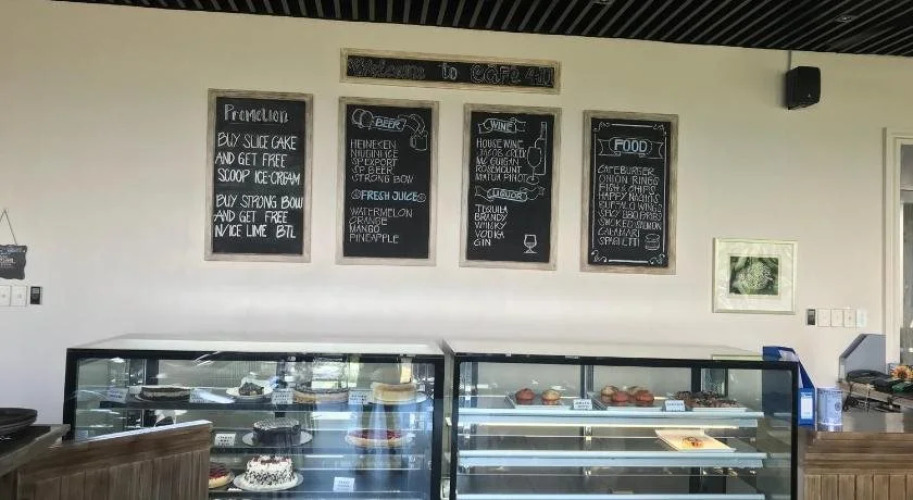 Welcome to CaFe
Promotion
BUY SLICE CAKE
AND GET FREE
SCOOP ICE-CREAM
BUY STRONG BOW
AND GET FREE
N/ICE LIME BTL
BEER
HEINEKEN
NIUGINI ICE
SP EXPORT
SP BEER
STRONG BOW
FRESH JUICE
WATERMELON
ORANGE
MANGO
PINEAPPLE
WINE
HOUSE WINE
JACOB CREEK
MC GUIGAN
ROSEMOUNT
MATUA PINOT
LIQUOR
TIQUILA
BRANDY
WHISKY
VODKA
GIN
FOOD
CAFE BURGER
ONION RINGS
FISH & CHIPS
HAPPY NACHOS
BUFFALO WINGS
SPICY BBQ
SMOKED SALMON
CALAMARI
SPAGHETTI